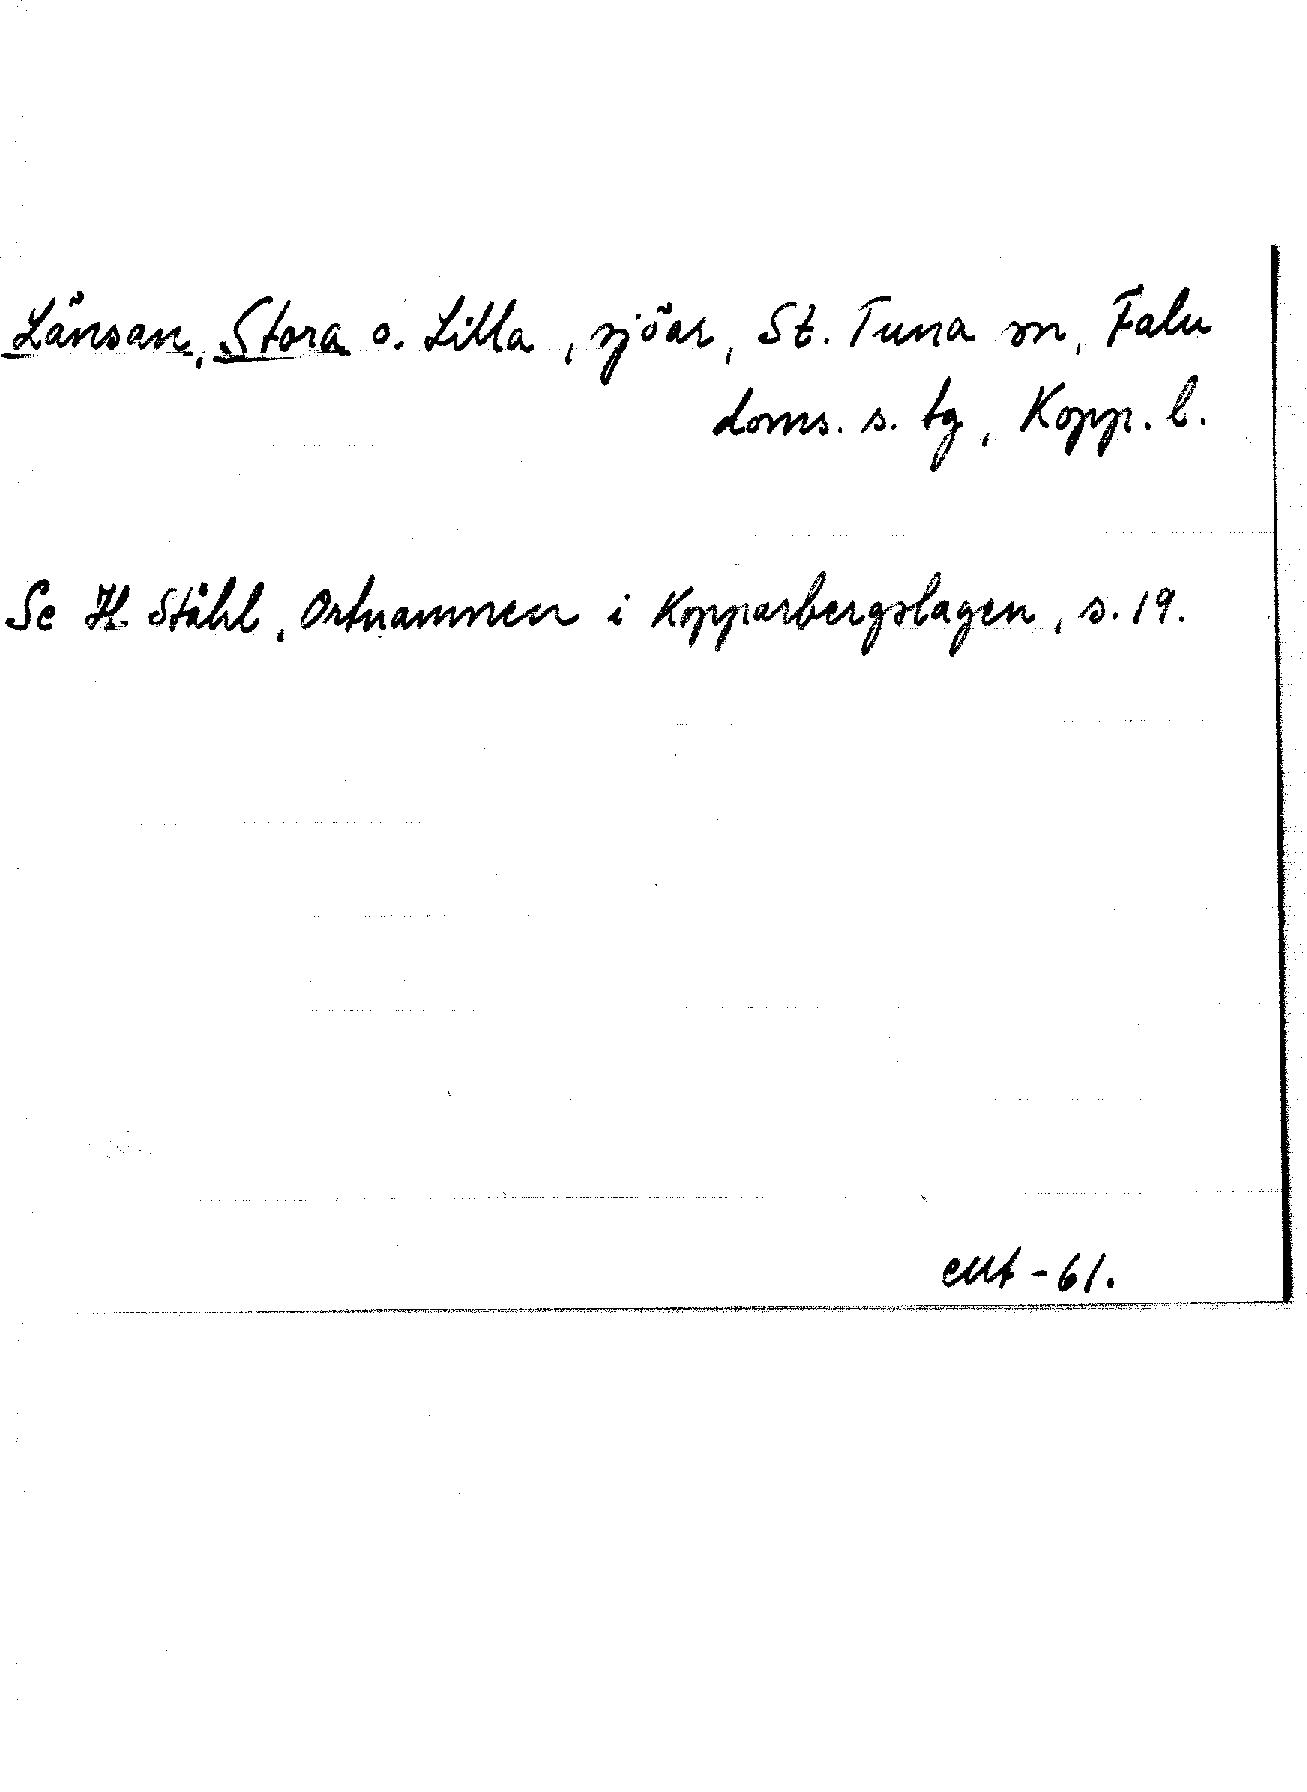 Länsan, Stora o. Lilla, sjöar, St. Tuna sn, Falu
doms. s. tg, Kopp. l.
Se H Ståhl, Ortnamnen i Kopparbergslagen, s. 19.
-61.